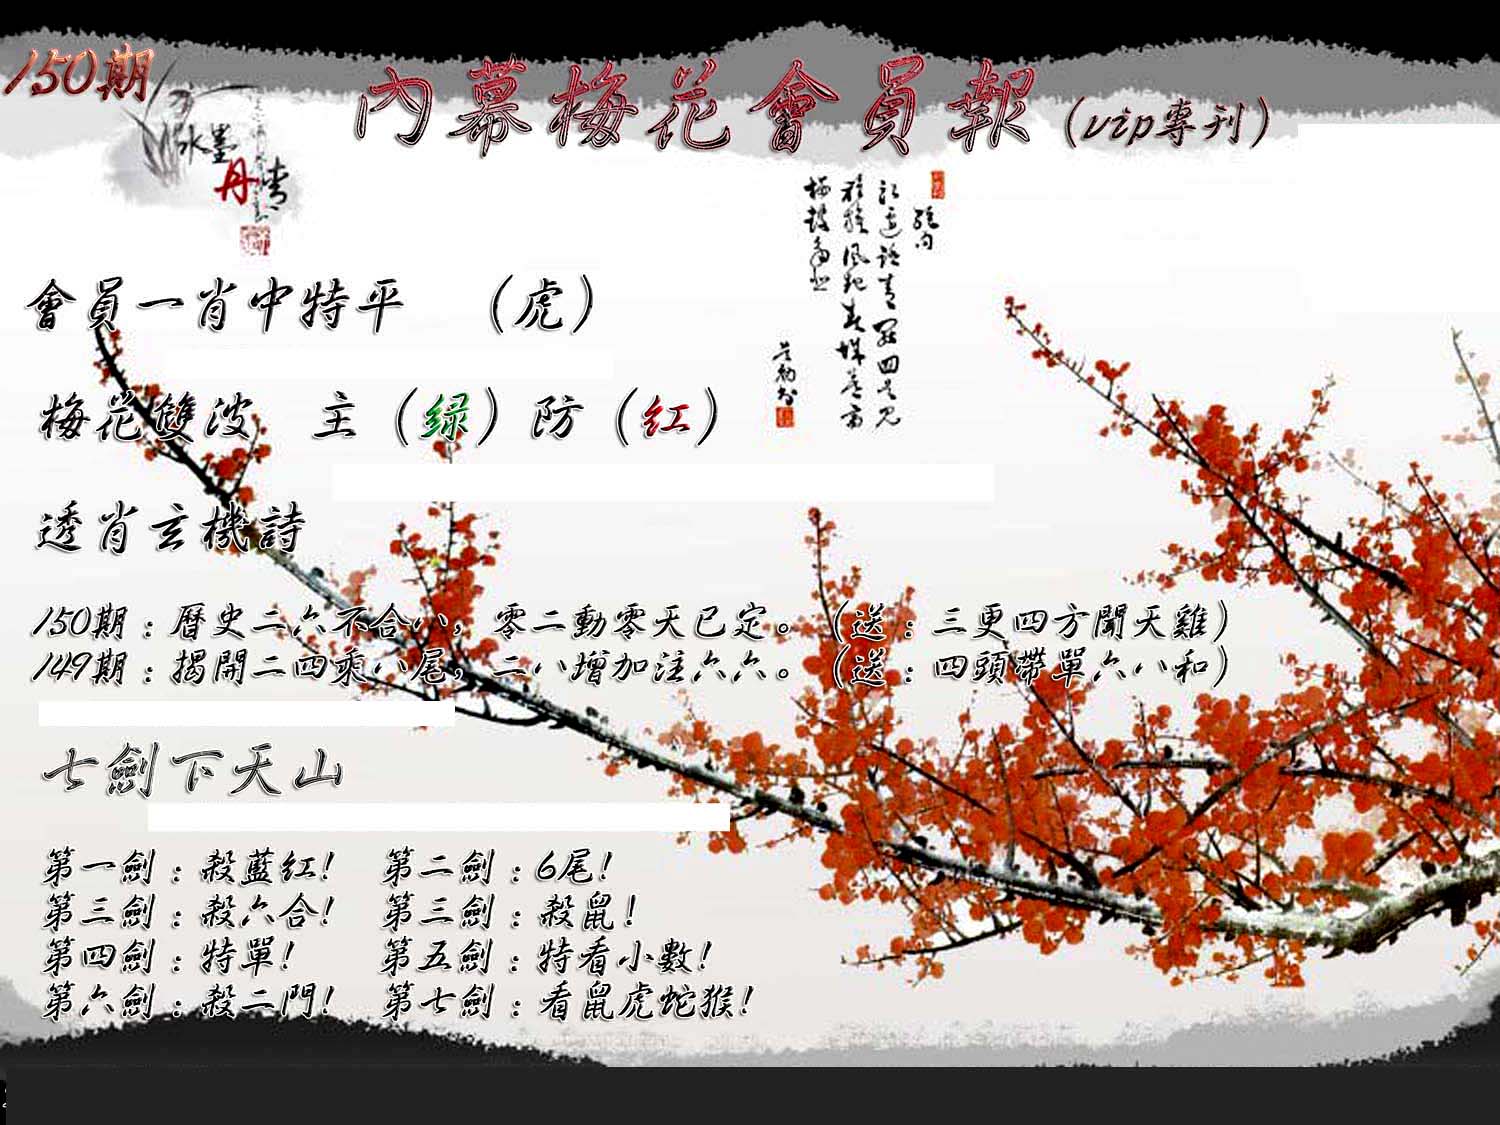 150期
內幕梅花會員報（vip專刊）
水墨
丹青
會員一肖中特平　（虎）
梅花雙波　主（綠）防（紅）
透肖玄機詩
150期：曆史二六不合八，零二動零天已定。（送：三更四方聞天雞）
149期：揭開二四乘八尾，二八增加注六六。（送：四頭帶單六八和）
七劍下天山
第一劍：殺藍紅！　第二劍：6尾！
第三劍：殺六合！　第三劍：殺鼠！
第四劍：特單！　第五劍：特看小數！
第六劍：殺二門！　第七劍：看鼠虎蛇猴！